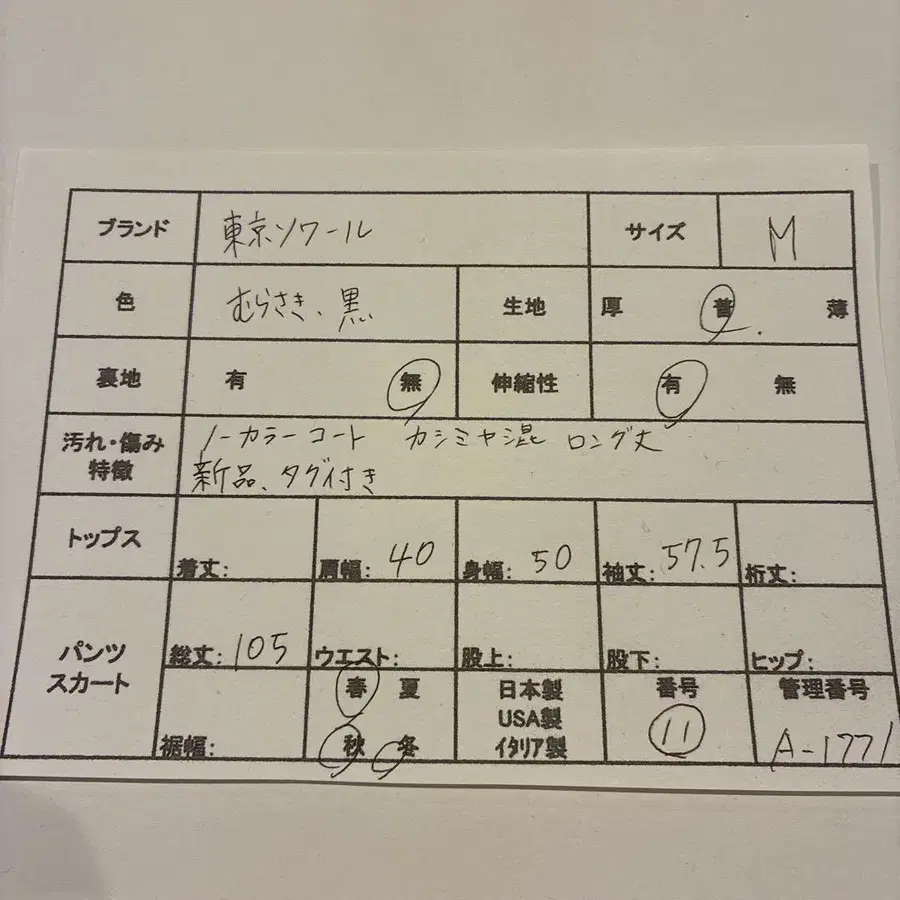 ブランド 東京ソワール サイズ M
色 むらさき、黒 生地 厚 普 薄
裏地 有 無 伸縮性 有 無
汚れ・傷み
特徴
ノーカラーコート カシミヤ混 ロング丈
新品、タグ付き
トップス 着丈: 肩幅: 40 身幅: 50 袖丈: 57.5 裄丈:
パンツ
スカート
総丈: 105 ウエスト: 股上: 股下: ヒップ:
裾幅:
春 夏
秋 冬
日本製
USA製
イタリア製
番号
11
管理番号
A-1771